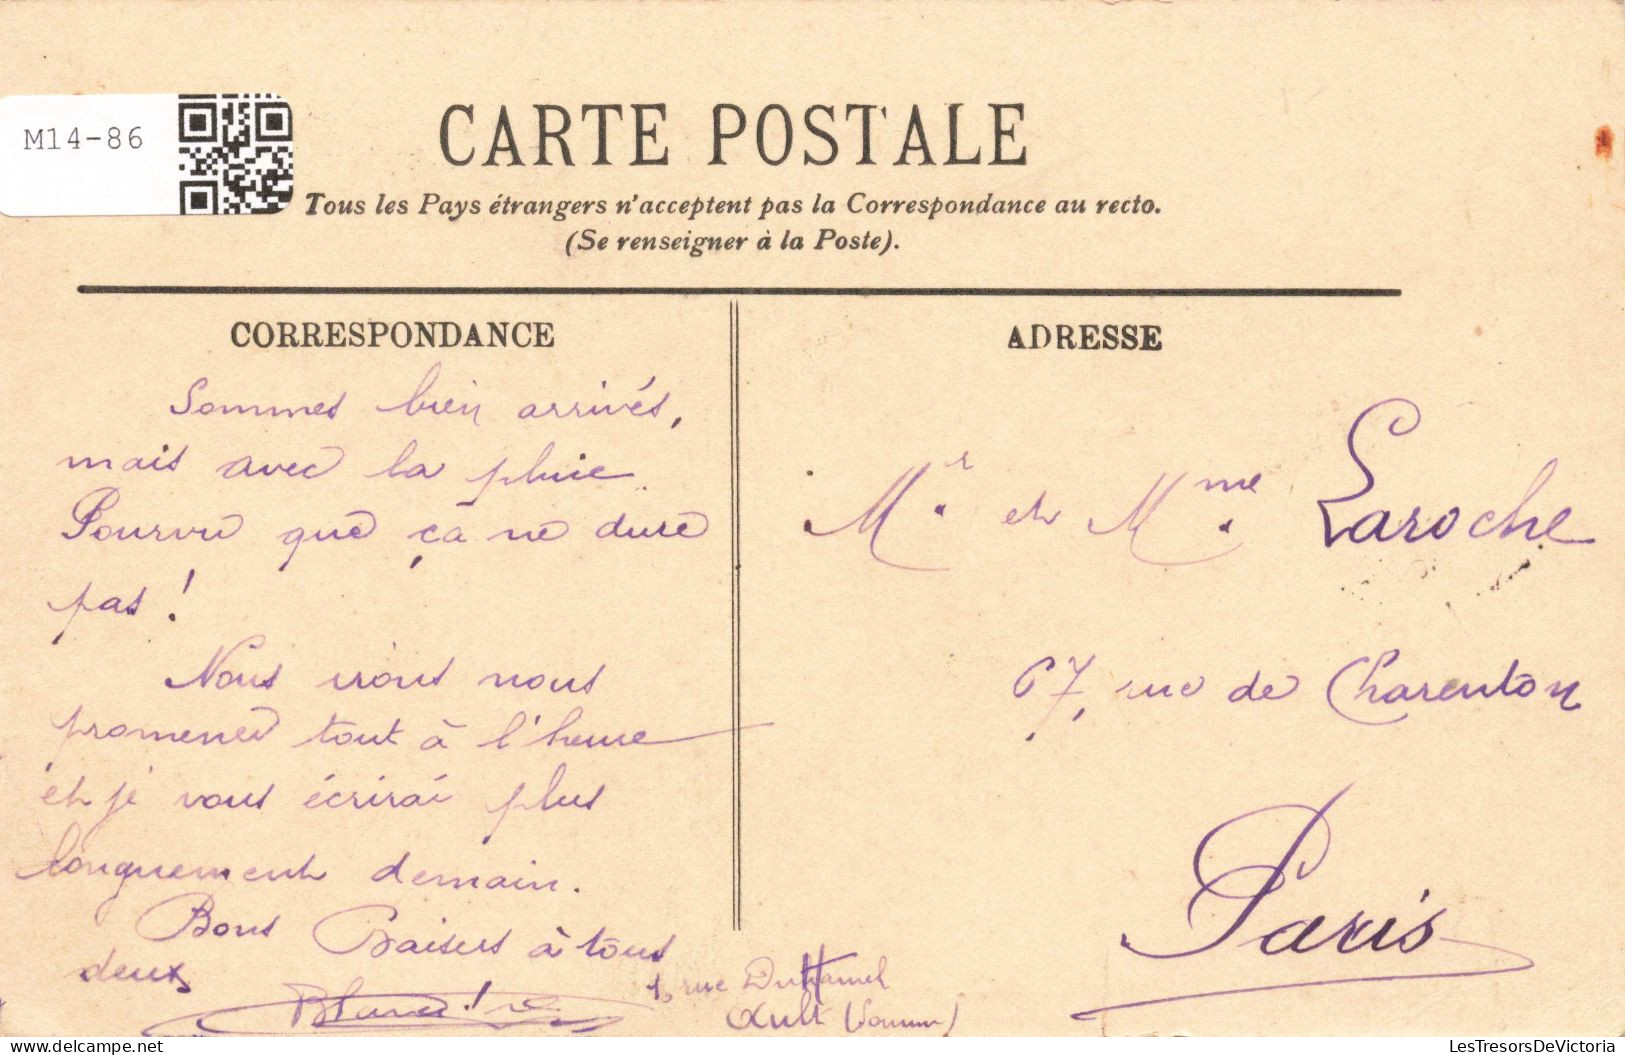 M14-86
CARTE POSTALE
Tous les Pays étrangers n'acceptent pas la Correspondance au recto.
(Se renseigner à la Poste).
CORRESPONDANCE
Sommes bien arrivés,
mais avec la pluie.
Pourvu que ça ne dure
pas !
Nous irons nous
promener tout à l'heure
et je vous écrirai plus
longuement demain.
Bons Baisers à tous
deux
1, rue Duhamel
Ault (Somme)
ADRESSE
Mr. et Mme. Laroche
67, rue de Charenton
Paris
LesTresorsDeVictoria